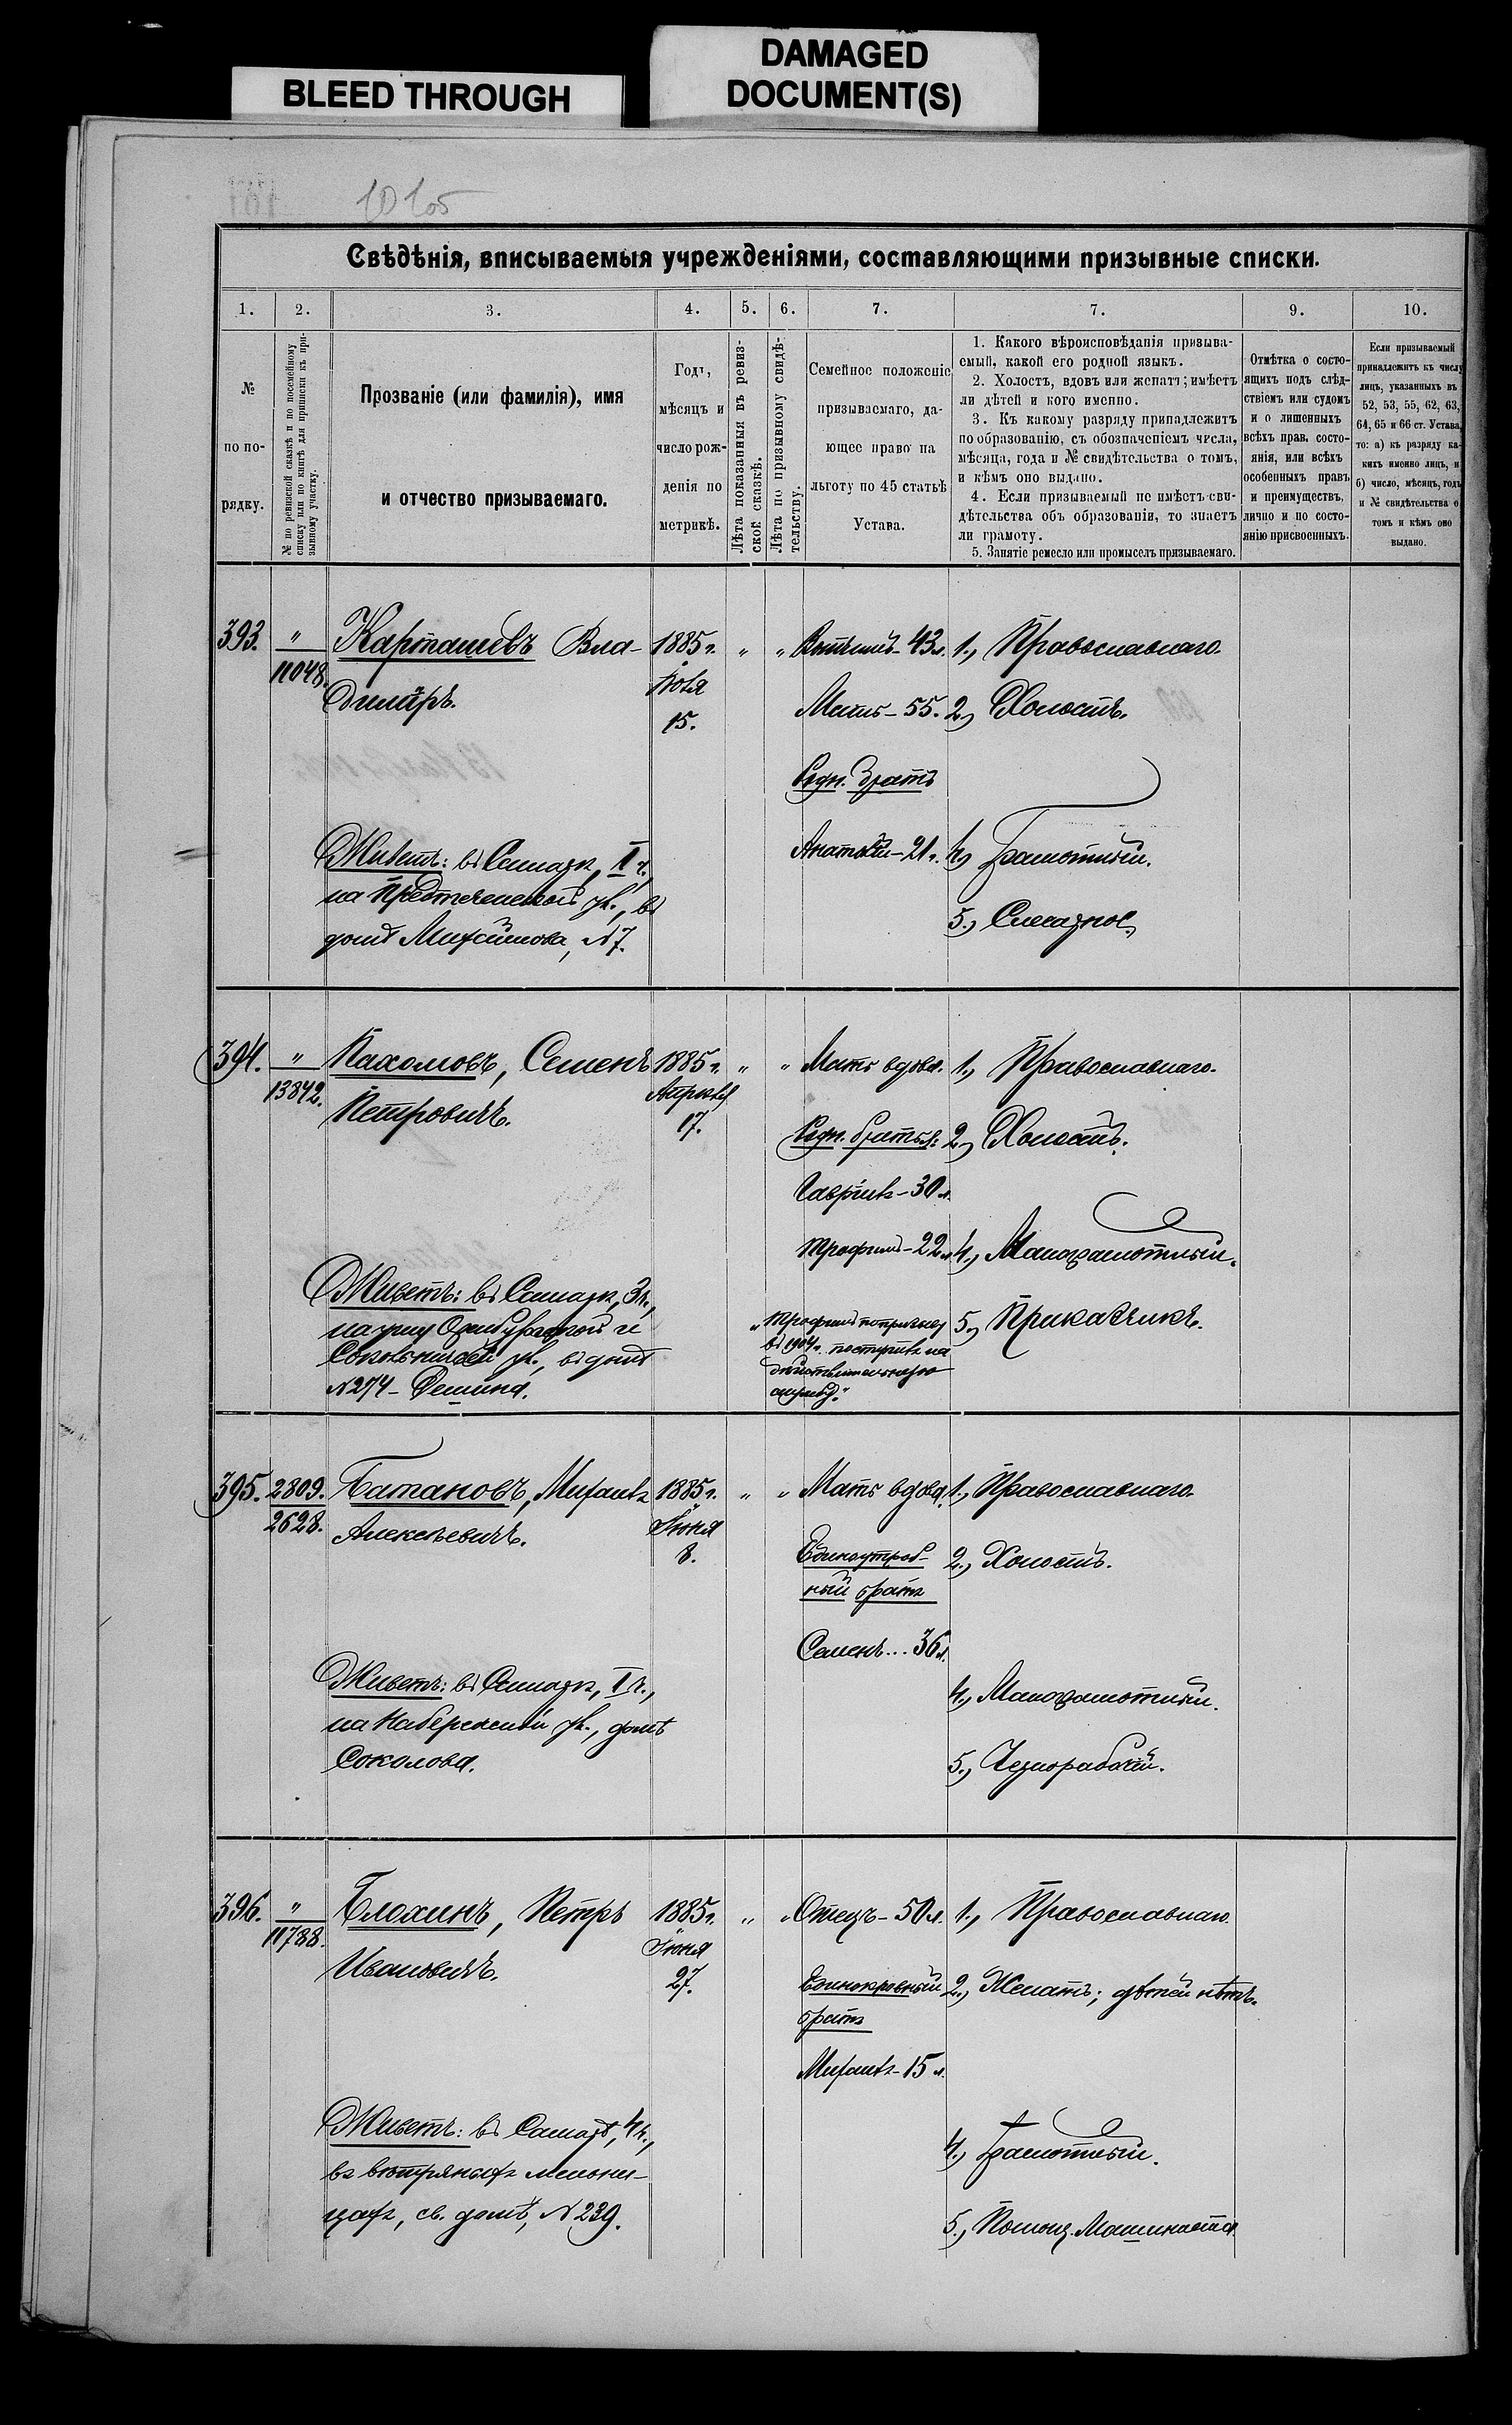 BLEED THROUGH
DAMAGED
DOCUMENT(S)
Свѣдѣнія, вписываемыя учрежденіями, составляющими призывные списки.
1.
2.
3.
4.
5.
6.
7.
7.
9.
10.
№
по по-
рядку.
№ по ревизской сказкѣ и по посемейному
списку или по книгѣ для приписки къ при-
зывному участку.
Прозваніе (или фамилія), имя
и отчество призываемаго.
Годъ,
мѣсяцъ и
число рож-
денія по
метрикѣ.
Лѣта показанныя въ ревиз-
ской сказкѣ.
Лѣта по призывному свидѣ-
тельству.
Семейное положеніе
призываемаго, да-
ющее право на
льготу по 45 статьѣ
Устава.
1. Какого вѣроисповѣданія призыва-
емый, какой его родной языкъ.
2. Холостъ, вдовъ или женатъ; имѣетъ
ли дѣтей и кого именно.
3. Къ какому разряду принадлежитъ
по образованію, съ обозначеніемъ числа,
мѣсяца, года и № свидѣтельства о томъ,
и кѣмъ оно выдано.
4. Если призываемый не имѣетъ сви-
дѣтельства объ образованіи, то знаетъ
ли грамоту.
5. Занятіе ремесло или промыселъ призываемаго.
Отмѣтка о состо-
ящихъ подъ слѣд-
ствіемъ или судомъ
и о лишенныхъ
всѣхъ прав. состо-
янія, или всѣхъ
особенныхъ правъ
и преимуществъ,
лично и по состо-
янію присвоенныхъ.
Если призываемый
принадлежитъ къ числу
лицъ, указанныхъ въ
52, 53, 55, 62, 63,
64, 65 и 66 ст. Устава,
то: а) къ разряду ка-
кихъ именно лицъ, и
б) число, мѣсяцъ, годъ
и № свидѣтельства о
томъ и кѣмъ оно
выдано.
393.
"
11048.
Карташевъ Вла-
димiръ.
Живетъ: въ Самарѣ, II ч.,
на Предтеченской ул., въ
домѣ , № 7.
1885 г.
Іюля
15.
"
"
Вотчимъ - 43 л.
Мать - 55.
Родн. братъ
Анатолiй - 21 г.
1., Православнаго.
2., Холостъ.
4., Грамотный.
5., Слесарное.
394.
"
13842.
Пахомовъ, Семенъ
Петровичъ.
Живетъ: въ Самарѣ, 3 ч.,
на углу Оренбургской и
Сокольничьей ул., въ домѣ
№ 274 - Демина.
1885 г.
Апрѣля
17.
"
"
Мать вдова.
Родн. братья:
Гаврiилъ - 30 л.
Трофимъ - 22 л.
"Трофимъ по призыву
въ 1904 г. поступилъ на
дѣйствительную
службу."
1., Православнаго.
2., Холостъ.
4., Малограмотный.
5., Приказчикъ.
395.
2809.
2628.
Батановъ, Михаилъ
Алексѣевичъ.
Живетъ: въ Самарѣ, I ч.,
на Набережной ул., домъ
Соколова.
1885 г.
Іюня
8.
"
"
Мать вдова.
Единоутроб-
ный братъ
Семенъ... 36 л.
1., Православнаго.
2., Холостъ.
4., Малограмотный.
5., Чернорабочiй.
396.
"
11788.
Блохинъ, Петръ
Ивановичъ.
Живетъ: въ Самарѣ, 4 ч.,
въ вѣтряныхъ мельни-
цахъ, св. домъ, № 239.
1885 г.
Іюня
27.
"
"
Отецъ - 50 л.
Единокровный
братъ
Михаилъ - 15 л.
1., Православнаго.
2., Женатъ; дѣтей нѣтъ.
4., Грамотный.
5., Помощ. Машиниста.